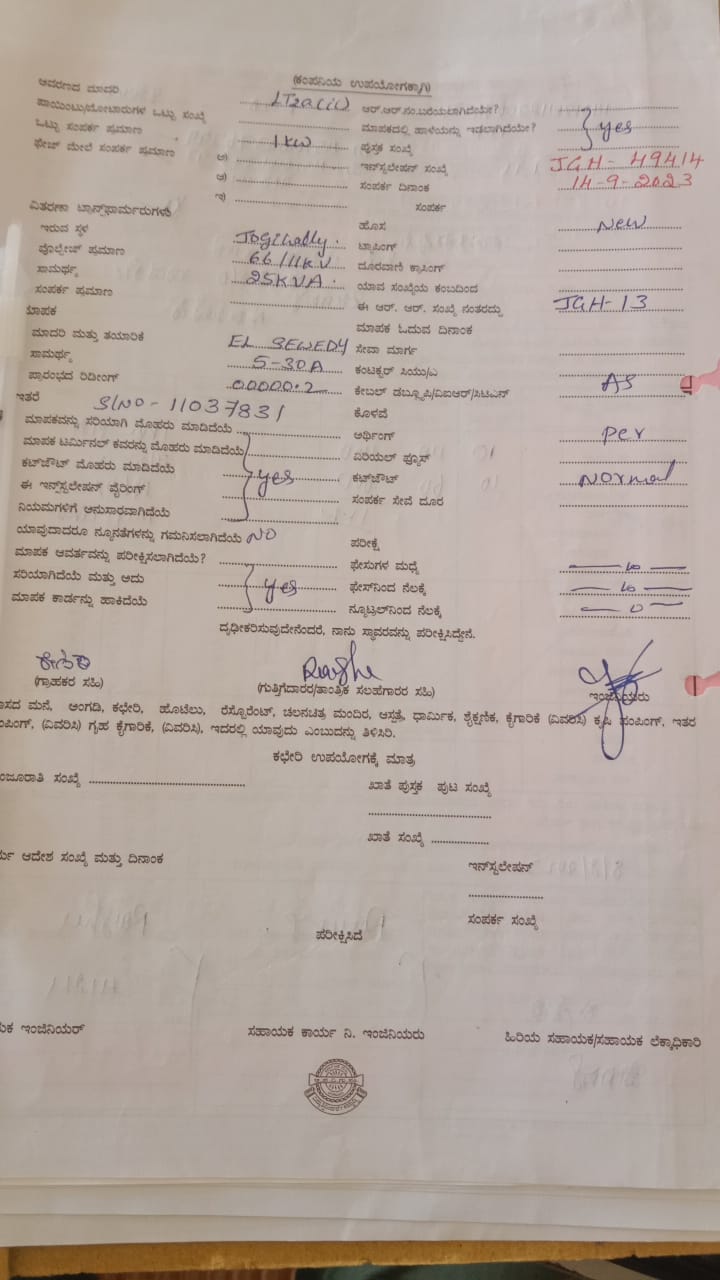 (ಕಂಪನಿಯ ಉಪಯೋಗಕ್ಕಾಗಿ)
ಆವರಣದ ಮಾದರಿ LT2a(ii) ಆರ್.ಆರ್.ನಂ.ಬರೆಯಲಾಗಿದೆಯೇ?
ಪಾಯಿಂಟು/ಮೋಟಾರುಗಳ ಒಟ್ಟು ಸಂಖ್ಯೆ ಮಾಪಕದಲ್ಲಿ ಹಾಳೆಯನ್ನು ಇಡಲಾಗಿದೆಯೇ? yes
ಒಟ್ಟು ಸಂಪರ್ಕ ಪ್ರಮಾಣ 1 KW ಪುಸ್ತಕ ಸಂಖ್ಯೆ
ಫೇಜ್ ಮೇಲೆ ಸಂಪರ್ಕ ಪ್ರಮಾಣ ಅ) ಇನ್‌ಸ್ಟಲೇಷನ್ ಸಂಖ್ಯೆ JGH-49414
ಆ) ಸಂಪರ್ಕ ದಿನಾಂಕ 14-9-2023
ಇ) ಸಂಪರ್ಕ
ವಿತರಣಾ ಟ್ರಾನ್ಸ್‌ಫಾರ್ಮರುಗಳು ಹೊಸ New
ಇರುವ ಸ್ಥಳ Jogihally. ಟ್ಯಾಪಿಂಗ್
ವೊಲ್ಟೇಜ್ ಪ್ರಮಾಣ 66/11KV ದೂರವಾಣಿ ಕ್ರಾಸಿಂಗ್
ಸಾಮರ್ಥ್ಯ 25KVA. ಯಾವ ಸಂಖ್ಯೆಯ ಕಂಬದಿಂದ
ಸಂಪರ್ಕ ಪ್ರಮಾಣ ಈ ಆರ್. ಆರ್. ಸಂಖ್ಯೆ ನಂತರದ್ದು JGH-13
ಮಾಪಕ ಮಾಪಕ ಓದುವ ದಿನಾಂಕ
ಮಾದರಿ ಮತ್ತು ತಯಾರಿಕೆ EL SEWEDY ಸೇವಾ ಮಾರ್ಗ
ಸಾಮರ್ಥ್ಯ 5-30A ಕಂಟಕ್ಟರ್ ಸಿಯು/ಎ
ಪ್ರಾರಂಭದ ರಿಡೀಂಗ್ 00000.2 ಕೇಬಲ್ ಡಬ್ಲ್ಯೂಪಿ/ವಿಐಆರ್/ಸಿಟಿಎನ್ AS
ಇತರೆ S/NO-11037831 ಕೊಳವೆ
ಮಾಪಕವನ್ನು ಸರಿಯಾಗಿ ಮೊಹರು ಮಾಡಿದೆಯೆ ಅರ್ಥಿಂಗ್ per
ಮಾಪಕ ಟರ್ಮಿನಲ್ ಕವರನ್ನು ಮೊಹರು ಮಾಡಿದೆಯೆ ಏರಿಯಲ್ ಫ್ಯೂಸ್
ಕಟ್‌ಔಟ್ ಮೊಹರು ಮಾಡಿದೆಯೆ yes ಕಟ್‌ಔಟ್ Normal
ಈ ಇನ್‌ಸ್ಟಲೇಷನ್ ವೈರಿಂಗ್ ಸಂಪರ್ಕ ಸೇವೆ ದೂರ
ನಿಯಮಗಳಿಗೆ ಅನುಸಾರವಾಗಿದೆಯೆ
ಯಾವುದಾದರೂ ನ್ಯೂನತೆಗಳನ್ನು ಗಮನಿಸಲಾಗಿದೆಯೆ NO ಪರೀಕ್ಷೆ
ಮಾಪಕ ಆವರ್ತವನ್ನು ಪರೀಕ್ಷಿಸಲಾಗಿದೆಯೆ? ಫೇಸುಗಳ ಮಧ್ಯೆ
ಸರಿಯಾಗಿದೆಯೆ ಮತ್ತು ಅದು yes ಫೇಸ್‌ನಿಂದ ನೆಲಕ್ಕೆ
ಮಾಪಕ ಕಾರ್ಡನ್ನು ಹಾಕಿದೆಯೆ ನ್ಯೂಟ್ರಲ್‌ನಿಂದ ನೆಲಕ್ಕೆ
ದೃಢೀಕರಿಸುವುದೇನೆಂದರೆ, ನಾನು ಸ್ಥಾವರವನ್ನು ಪರೀಕ್ಷಿಸಿದ್ದೇನೆ.
(ಗ್ರಾಹಕರ ಸಹಿ) (ಗುತ್ತಿಗೆದಾರರ/ತಾಂತ್ರಿಕ ಸಲಹೆಗಾರರ ಸಹಿ) ಇಂಜಿನಿಯರು
ಮನೆ, ಅಂಗಡಿ, ಕಛೇರಿ, ಹೊಟೆಲು, ರೆಸ್ಟೊರೆಂಟ್, ಚಲನಚಿತ್ರ ಮಂದಿರ, ಆಸ್ಪತ್ರೆ, ಧಾರ್ಮಿಕ, ಶೈಕ್ಷಣಿಕ, ಕೈಗಾರಿಕೆ (ವಿವರಿಸಿ) ಕೃಷಿ ಪಂಪಿಂಗ್, ಇತರ
(ವಿವರಿಸಿ) ಗೃಹ ಕೈಗಾರಿಕೆ, (ವಿವರಿಸಿ), ಇದರಲ್ಲಿ ಯಾವುದು ಎಂಬುದನ್ನು ತಿಳಿಸಿರಿ.
ಕಛೇರಿ ಉಪಯೋಗಕ್ಕೆ ಮಾತ್ರ
ಸಂಖ್ಯೆ ಖಾತೆ ಪುಸ್ತಕ ಪುಟ ಸಂಖ್ಯೆ
ಖಾತೆ ಸಂಖ್ಯೆ
ಆದೇಶ ಸಂಖ್ಯೆ ಮತ್ತು ದಿನಾಂಕ ಇನ್‌ಸ್ಟಲೇಷನ್
ಸಂಪರ್ಕ ಸಂಖ್ಯೆ
ಪರೀಕ್ಷಿಸಿದೆ
ಇಂಜಿನಿಯರ್ ಸಹಾಯಕ ಕಾರ್ಯ ನಿ. ಇಂಜಿನಿಯರು ಹಿರಿಯ ಸಹಾಯಕ/ಸಹಾಯಕ ಲೆಕ್ಕಾಧಿಕಾರಿ